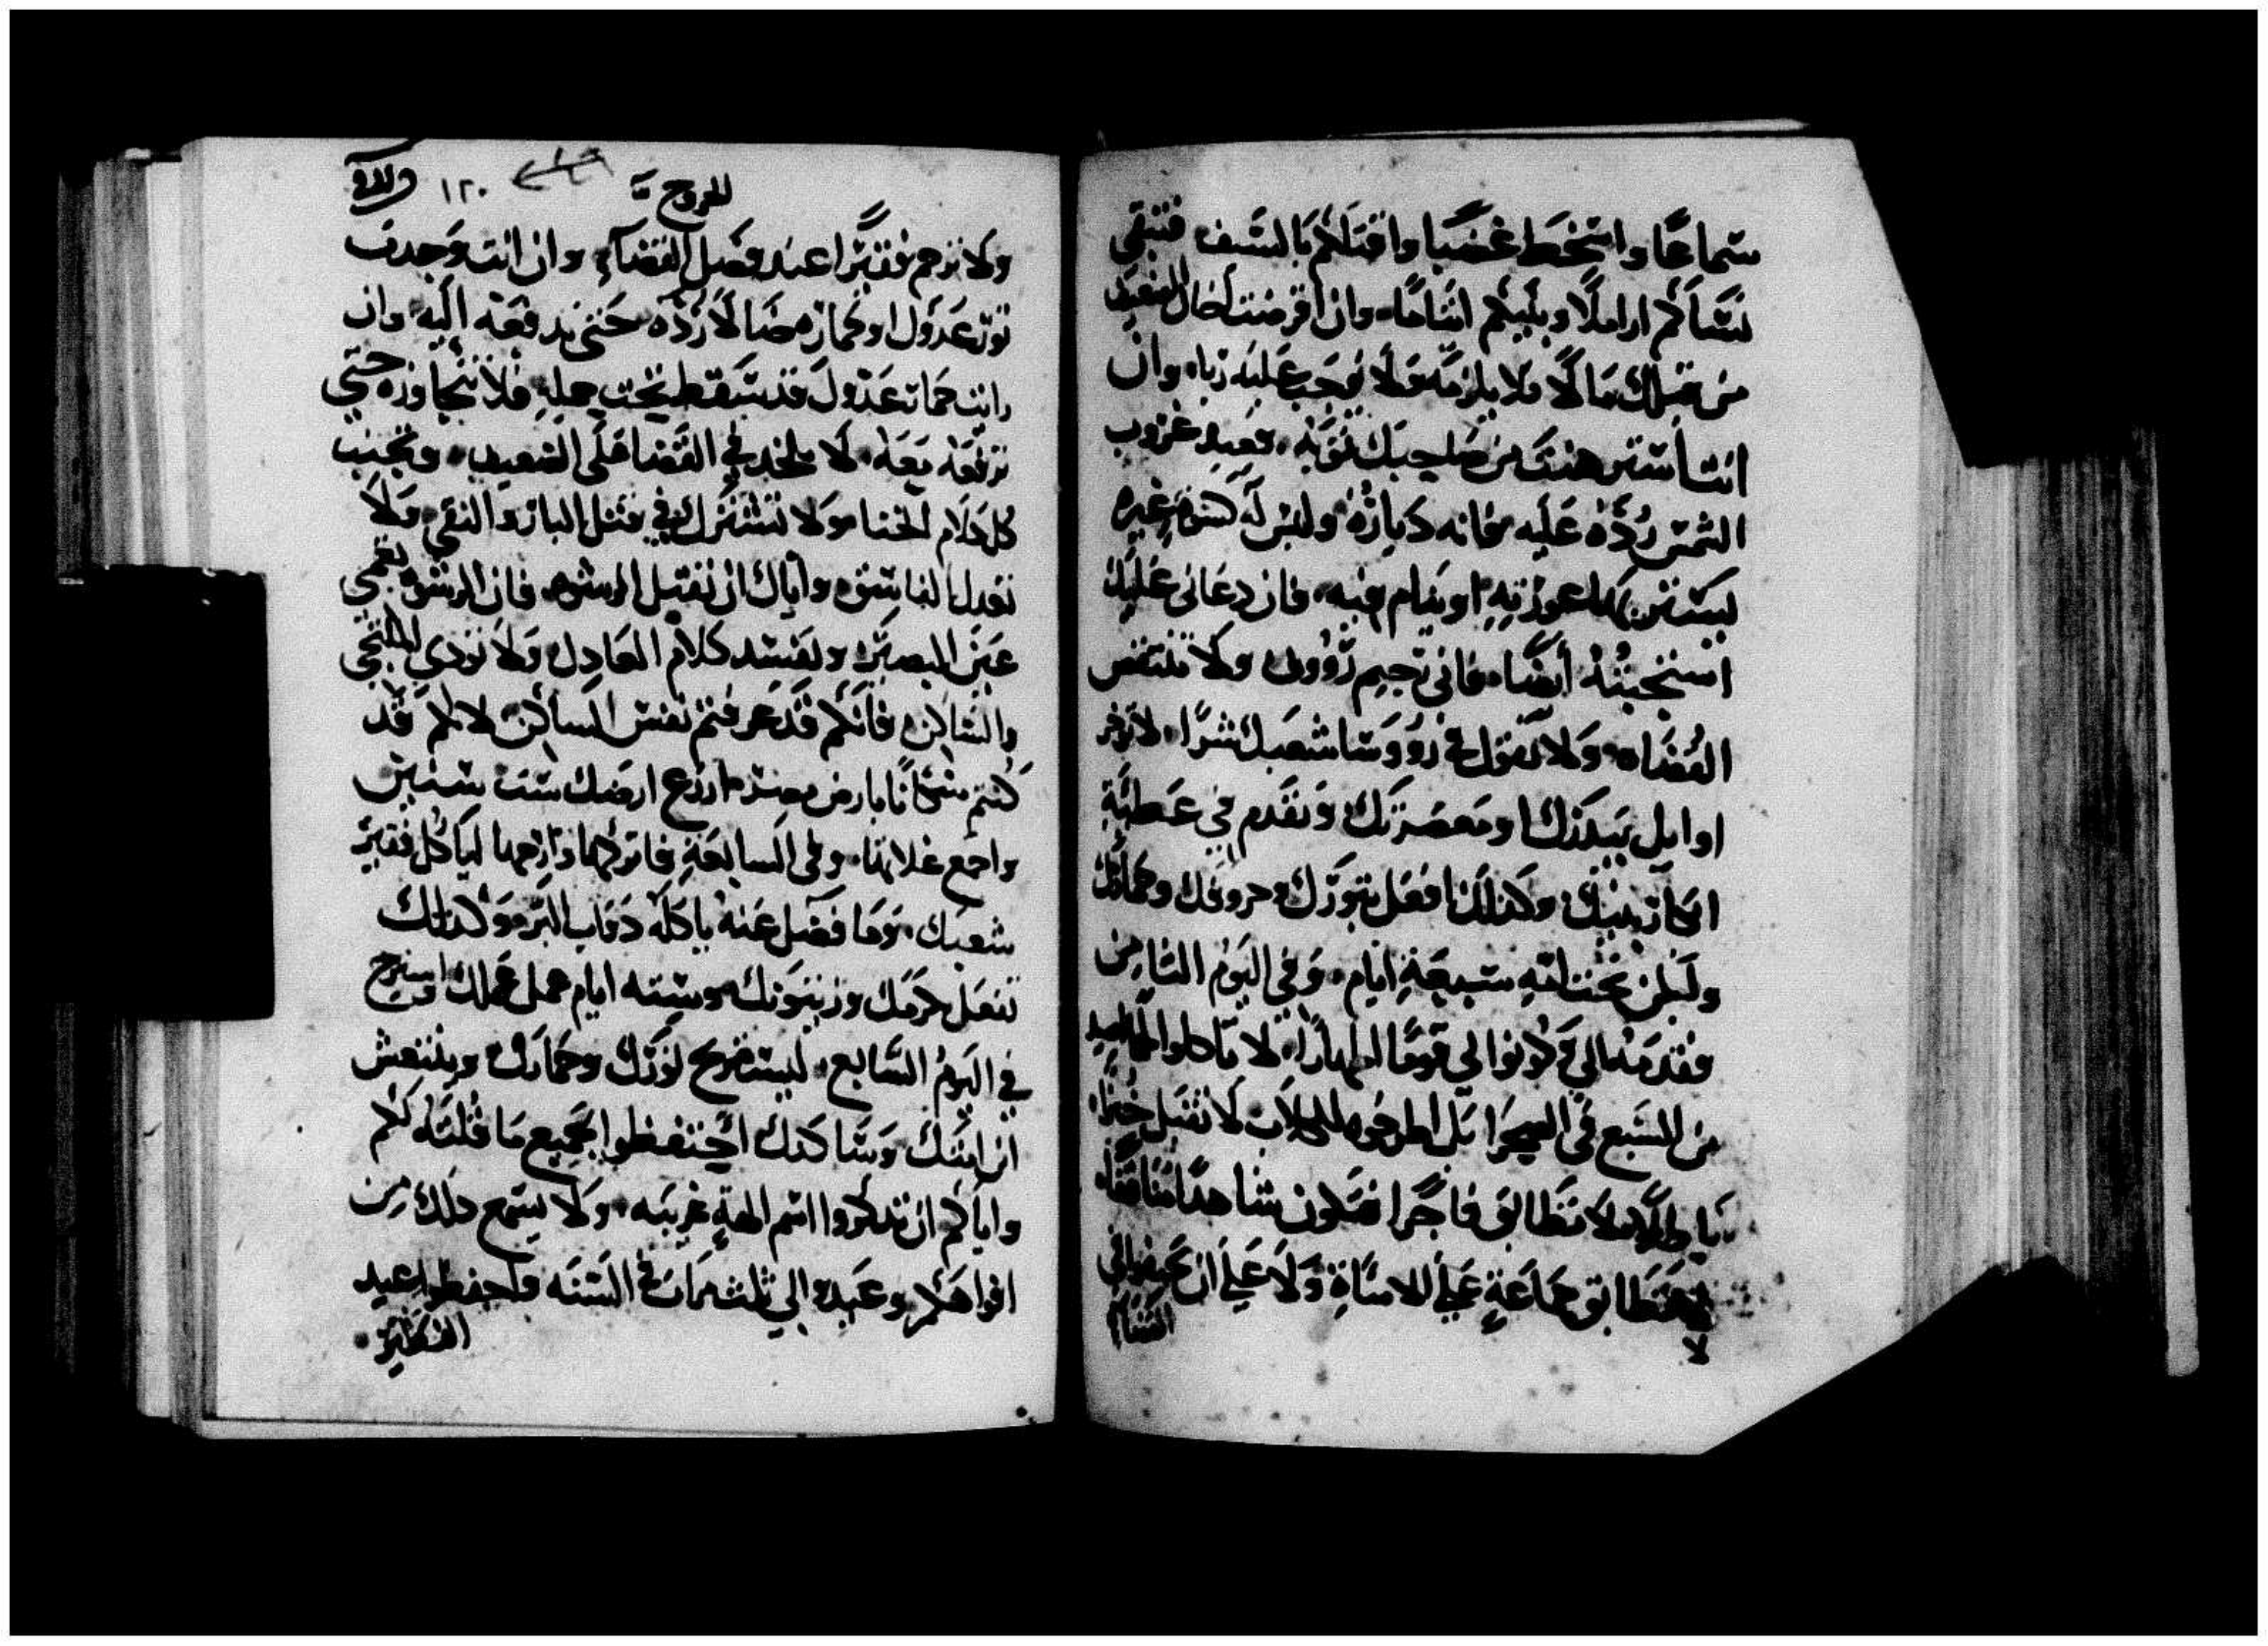 سماعًا واسخط غضبًا واقتلكم بالسيف فتبقى
نسَاكم اراملًا وبنيكم ايتامًا وان اقرضت اخاك الضعيف
من قبلك مالًا فلا يلزمه ولا يوجب عليه ربا، وان
انت استرهنت من صاحبك ثوبه، فعند غروب
الشمس رده عليه فانه دياره وليس له كسوة غيره
ليستتر بها عورته او ينام فيه، فان دعانى عليك
استجبته أيضًا، فانى رحيم رووف ولا تنتقص
القضاه ولا تقول فى رووسا شعبك شرًا، لا توخر
اوايل بيدرك ومعصرتك وتقدم في عطية
ابكار بنيك وكذلك افعل بثورك وخروفك وحمارك
وليكن تحت امه سبعة ايام، وفي اليوم الثامن
فقدمه الي، كونوا لي قومًا اطهارًا، لا تاكلوا لحمًا صيد
من السبع في الصحرا بل اطرحوه للكلاب لا تقبل خبرًا
باطلًا، ولا تطابق فاجرًا فتكون شاهدًا منافقًا،
لا تطابق جماعة علي الاساة ولا علي ان تحيفوا في
القضا
للخروج
١٢٠
ولا ترحم فقيرًا عند فصل القضاء، وان انت وجدت
ثور عدوك او حماره ضالا رده حتى تدفعه اليه وان
رايت حمار عدوك قد سقط تحت حمله فلا تتجاوزه حتى
ترفعه معه، لا تحد في القضا على الضعيف، وتجنب
كل كلام الخنا ولا تشترك في قتل البار والنقي، ولا
تعدل الفاسق، واياك ان تقبل الرشوه، فان الرشوه تعمي
عين البصير وتفسد كلام العادل ولا توذي الملتجي
والساكن فانكم قد عرفتم نفس الساكن لانكم قد
كنتم سكانًا بارض مصر ازرع ارضك ست سنين
واجمع غلاتها، وفى السابعة فاتركها وارحها لياكل فقير
شعبك، وما فضل عنه ياكله دواب البر، وكذلك
تفعل بكرمك وزيتونك وسته ايام اعمل عملك واسترح
في اليوم السابع، ليستريح ثورك وحمارك ويتنفس
ابن امتك وساكنك احتفظوا بجميع ما قلته لكم
واياكم ان تذكروا اسم الهة غريبه، ولا يسمع ذلك من
افواهكم وعيدوا لي ثلث مرات في السنه واحفظوا عيد
الفطير